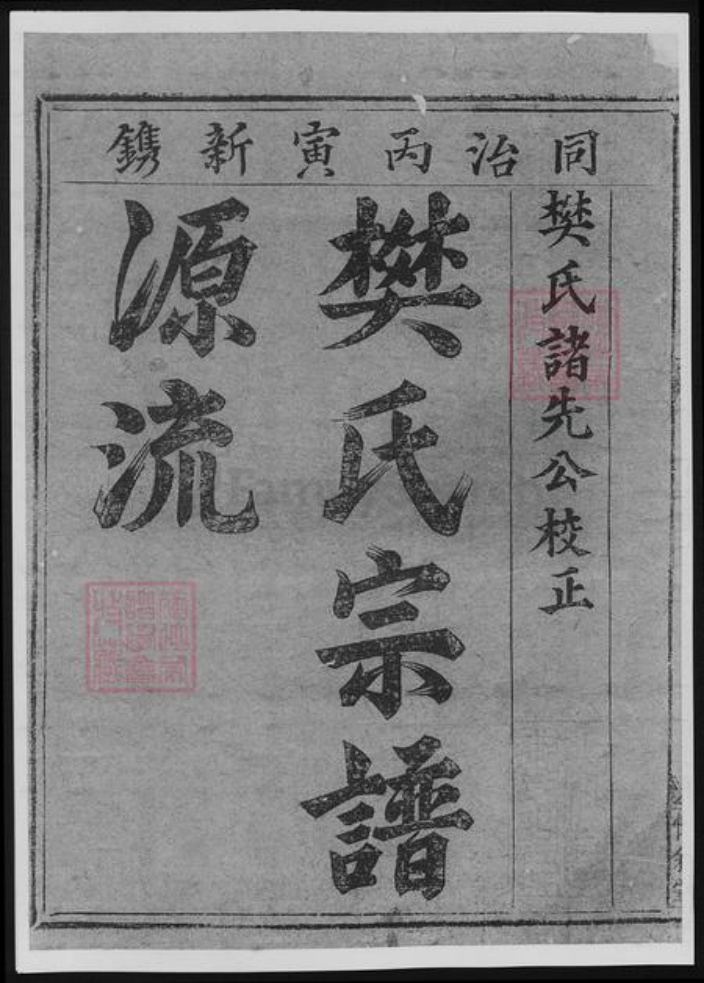 同治丙寅新鐫
樊氏諸先公校正
樊氏宗譜
源流